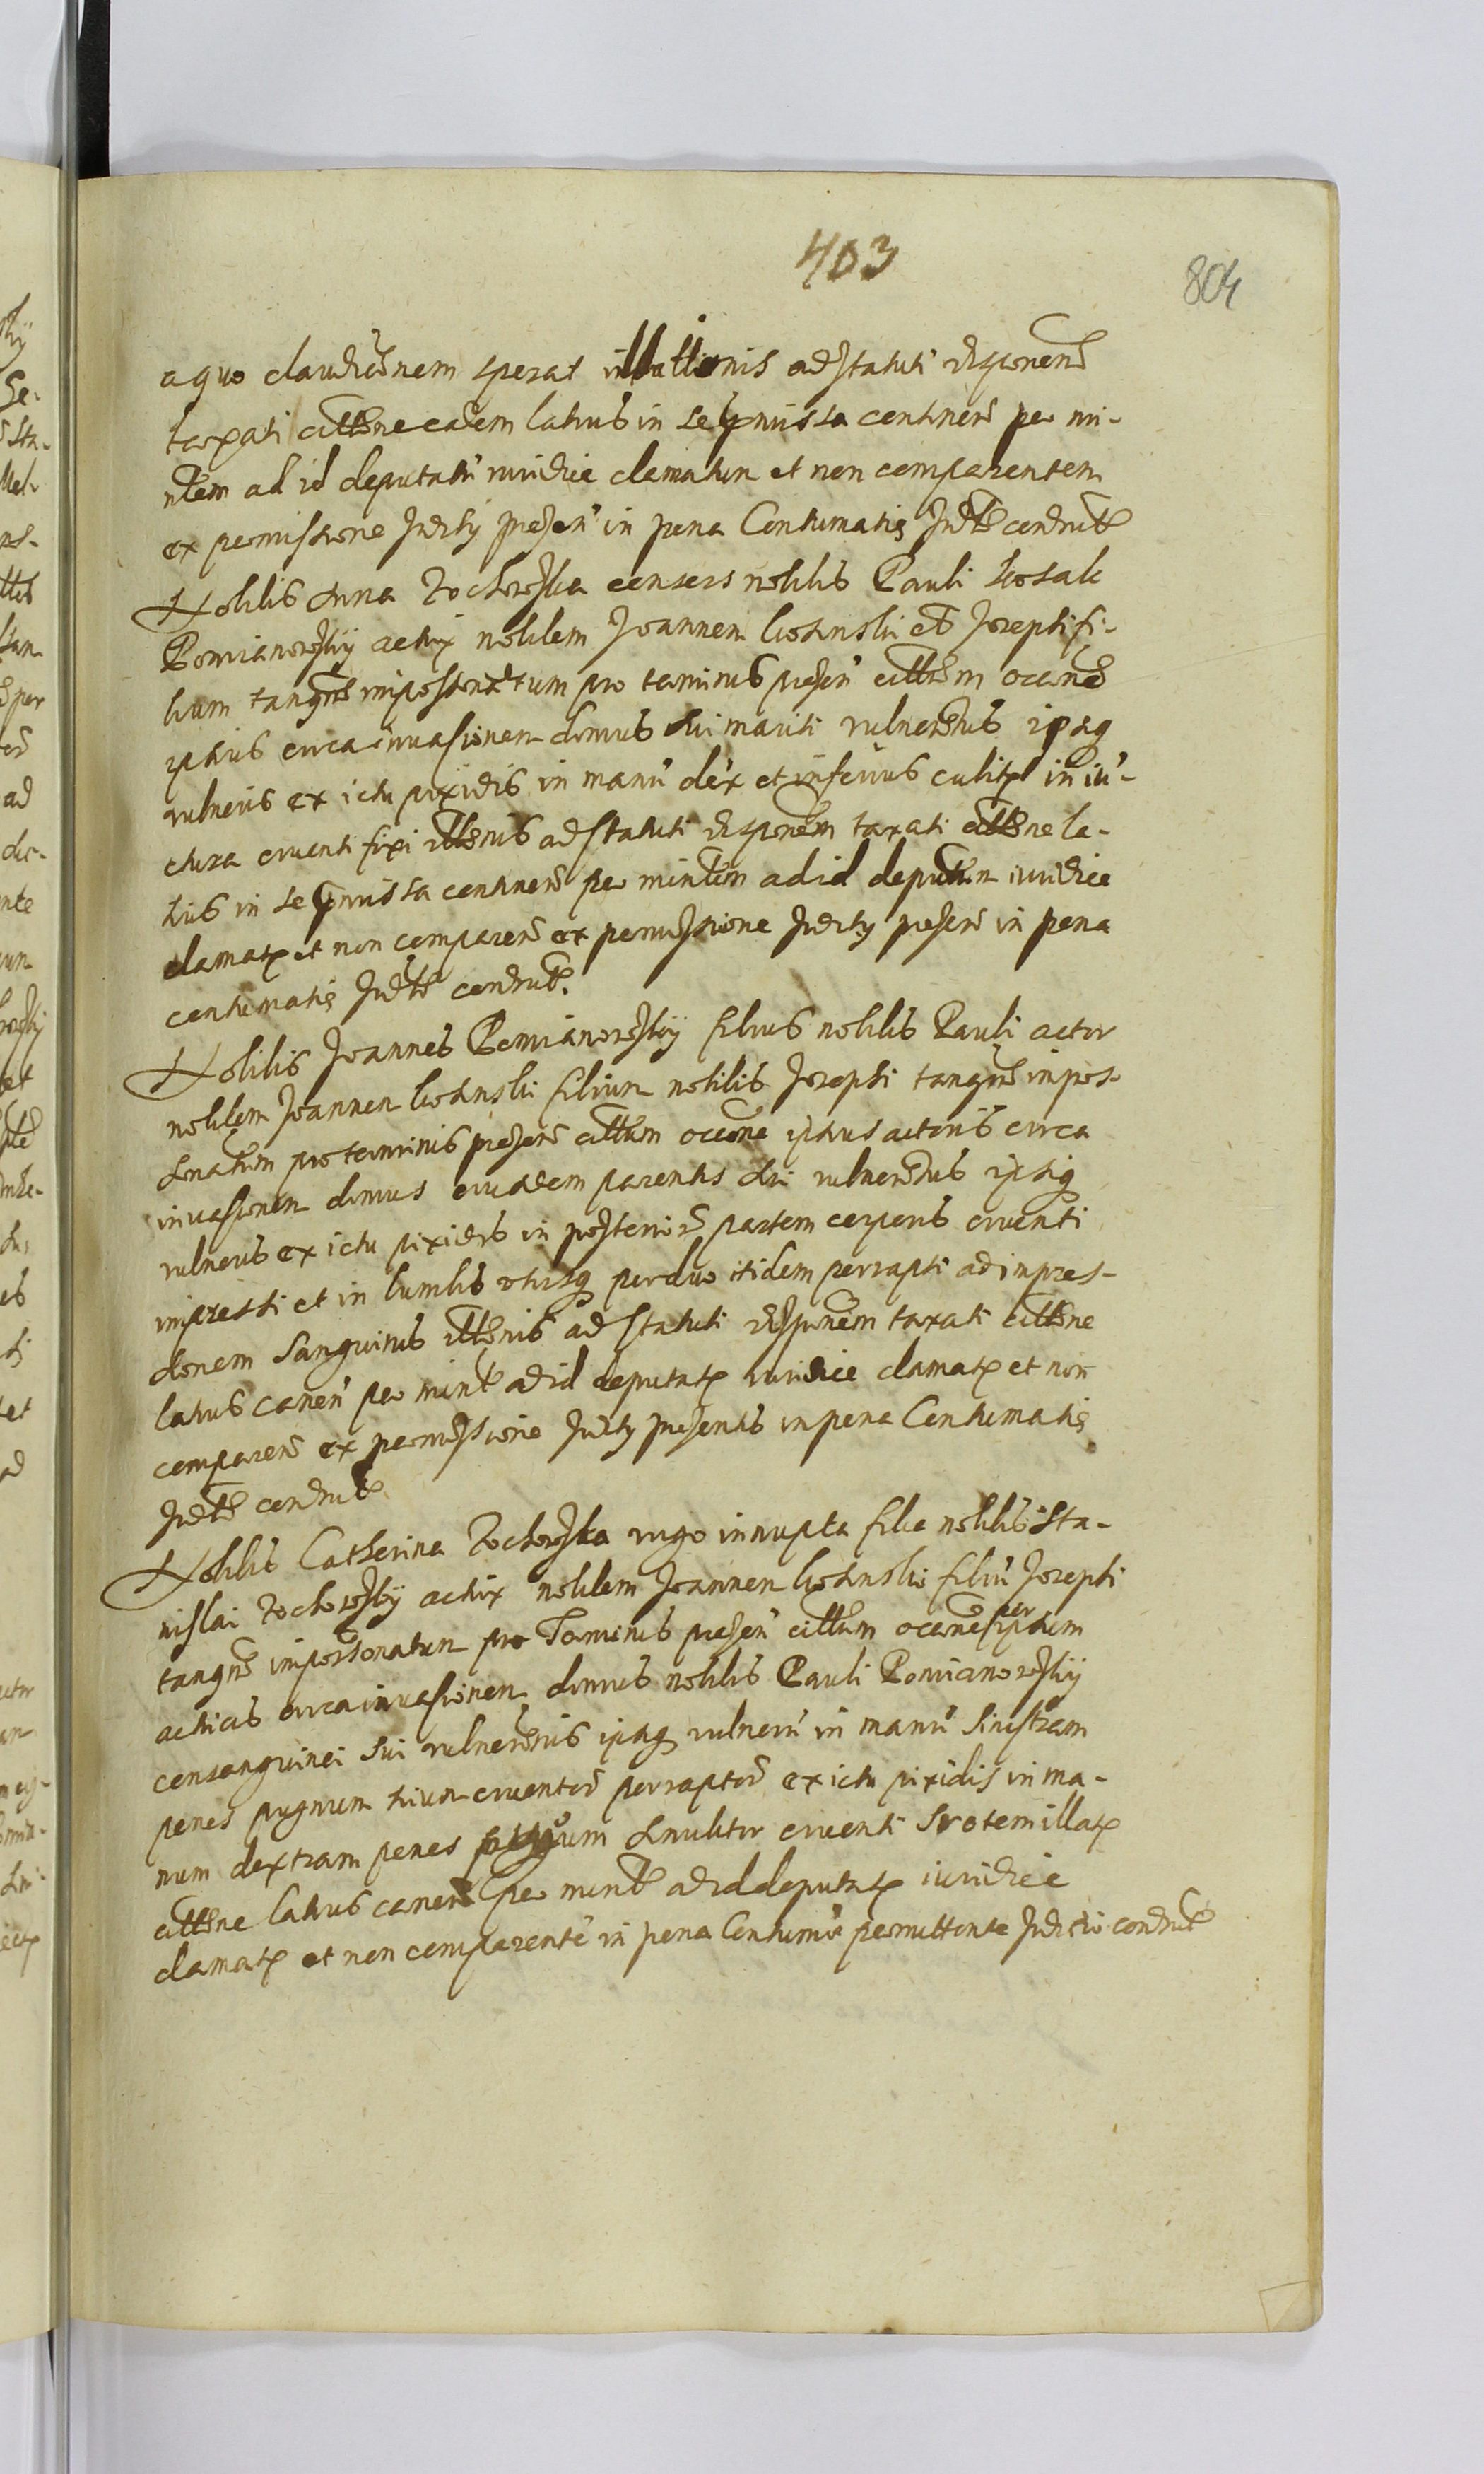 403
804
a quo claudicõnem sperat illationis ad statuti disponend
taxati cittõne eadem latius in se pmissa continen per mi-
ntem ad id deputatũ iuridice clamatum et non comparentem
ex permissione Juditij presen in pena Contumatiæ Judt condnt
Nobilis Anna Zochowska consors nobilis Pauli
Pomianowskij actrix nobilem Joannem et Josephi fi-
lium tanqm impossonatum pro terminis presen cittum occone
ipsius circa invasionem domus sui mariti vulneronis ipsaq
vulneris ex ictu pixidis in manu dex et inferius cubitu in iu-
ctura cruenti fixi illonis ad statuti disponem taxati cittõne la-
tius in se pmissa continen per mintem ad id deputum iuridice
clamat et non comparen ex permissione Juditij presen in pena
contumatiæ Judt condnt.
Nobilis Joannes Pomianowskij filius nobilis Pauli actor
nobilem Joannem filium nobilis Josephi tanqm impos-
sonatum pro terminis presen cittum occone ipsius actoris circa
invasionem domus eiusdem parentis sui vulneronis ipsiq
vulneris ex ictu pixidis in posteriore partem corporis cruenti
impressi et in lumbis utrisq per duo itidem perrapti ad inpres-
sionem Sanguinis illonis ad statuti disponem taxati cittõne
latius canen per mint ad id deputat iuridice clamat et non
comparen ex permissione Juditij presentis in pena Contumatiæ
Judt condnt
Nobilis Catherina Zochowska virgo innupta filia nobilis Sta-
nislai Zochowskij actrix nobilem Joannem filiũ Josephi
tanqm impossonatum pro Terminis presen cittum occone per ipsum
actricis circa invasionem domus nobilis Pauli Pomianowskij
consanguinei sui vulneronis ipsaq vulnerũ in manũ sinistram
penes pugnum trium cruentor perraptor ex ictu pixidis in ma-
num dextram penes pugnum similiter cruenti illat
cittõne latius canen per mint ad id deputat iuridice
clamat et non comparente in pena Contumac permittente Juditio condnt